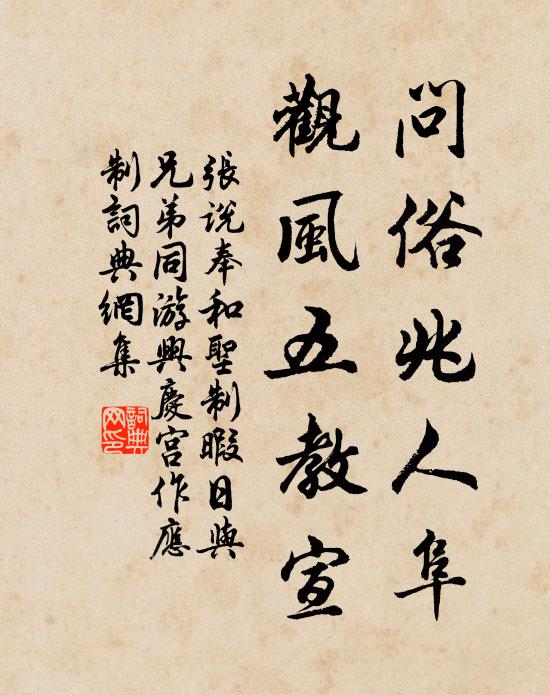 問俗兆人阜
觀風五教宣
張説奉和聖制暇日與
兄弟同游興慶宮作應
制詞典網集
詞典
网印